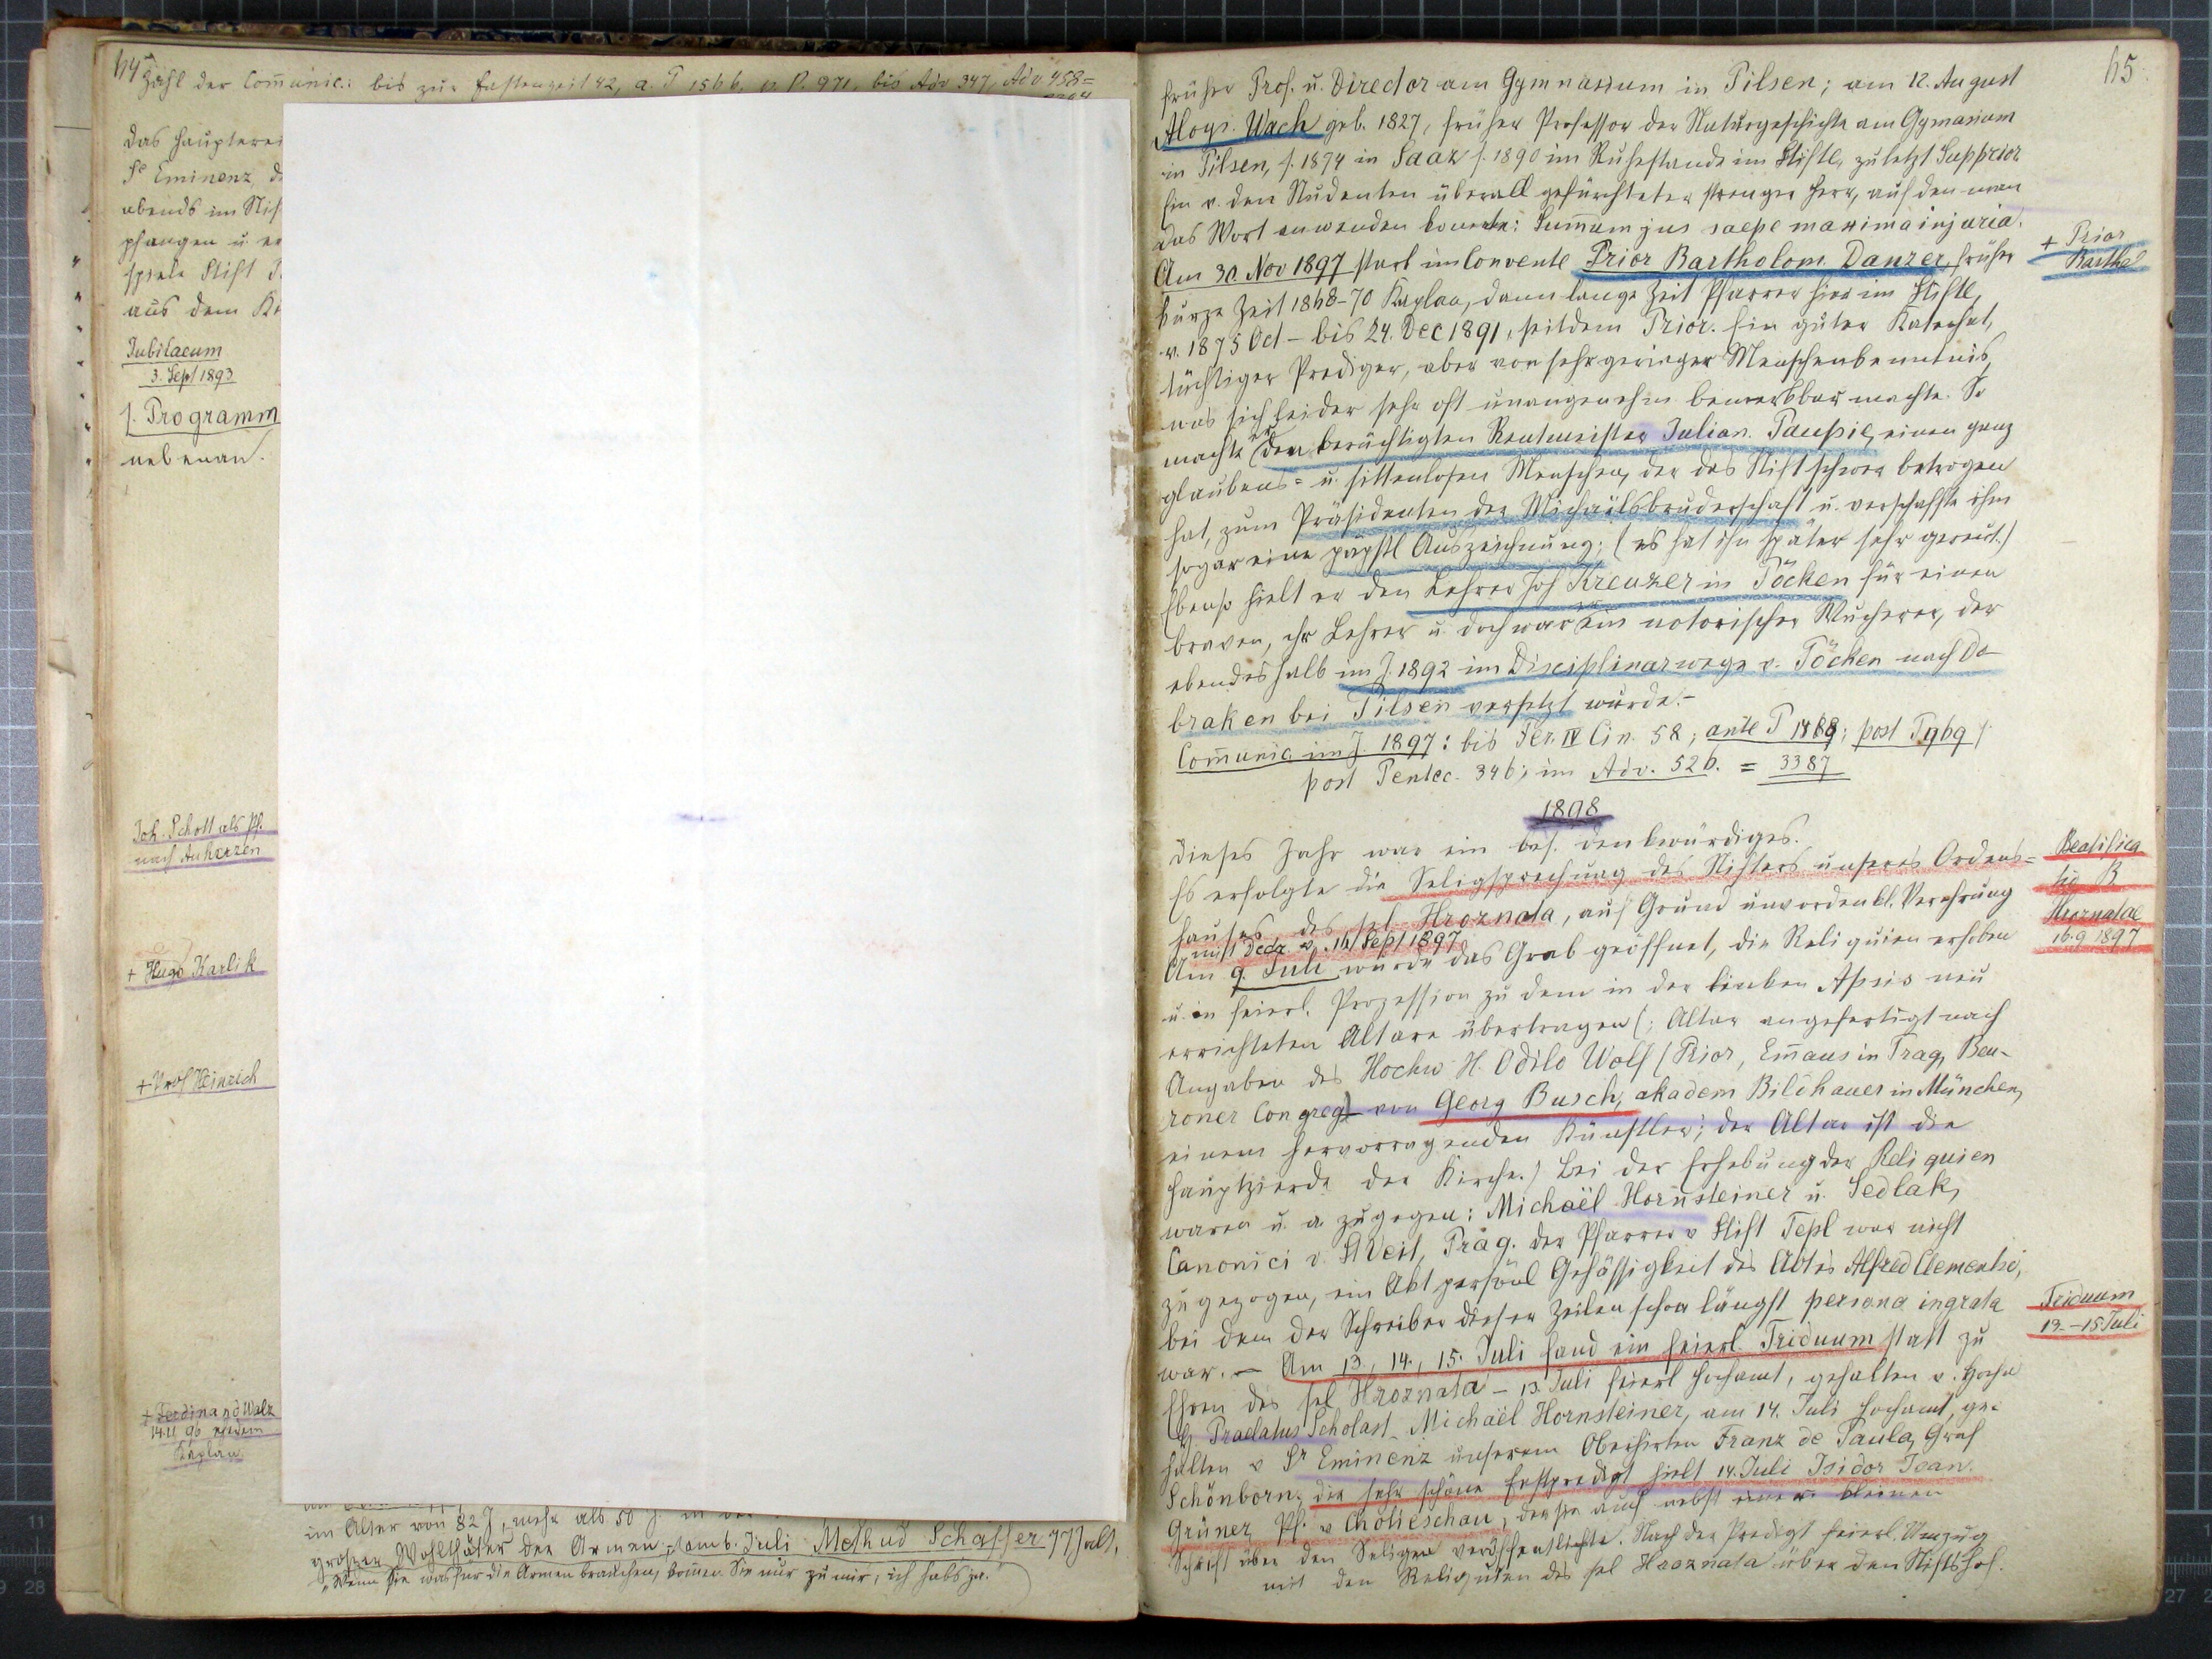 64
Zahl der Com̄unic.: bis zur Fastenzeit 42, a. P 1566, p. P. 971, bis Adv 347, Adv 458=
das Hauptere
Se Eminenz, d
abends im Stif
pfangen u. er
spiele Stift
aus dem
Jubilaeum
3. Sept 1893
s. Programm
nebenan.
Joh. Schott als Pf.
nach Auherzen
+ Hugo Karlik
+ Prof Heinrich
+ Ferdinand Walz
14.11 96 ehedem
Kaplan.
im Alter von 82 J, mehr als 50 J. in
großer Wohlthäter der Armen, am 6. Juli Methud Schaffer 77 J alt,
"Wenn Sie was für die Armen brauchen, kom̄en Sie nur zu mir, ich habs ja."
65.
früher Prof. u. Director am Gymnasium in Pilsen; am 12. August
Aloys. Wach geb. 1827, früher Professor der Naturgeschichte am Gymnasium
in Pilsen, s. 1874 in Saaz s. 1890 im Ruhestande im Stifte, zuletzt Supprior
Ein v. den Studenten überall gefürchteter strenger Herr, auf den man
das Wort anwenden konnte: Sum̄um jus saepe maxima injuria.
Am 30. Nov 1897 starb im Convente Prior Bartholom. Danzer, früher
+ Prior
Barthol
kurze Zeit 1868-70 Kaplan, dann lange Zeit Pfarrer hier im Stifte,
v. 1875 Oct - bis 24. Dec 1891, seitdem Prior. Ein guter Katechet,
tüchtiger Prediger, aber von sehr geringer Menschenkenntnis,
was sich leider sehr oft unangenehm bemerkbar machte. So
machte er den berüchtigten Rentmeister Julian. Paupie, einen ganz
glaubens= u. sittenlosen Menschen, der das Stift schwer betrogen
hat, zum Präsidenten der Michaëlsbruderschaft u. verschaffte ihm
sogar eine päpstl Auszeichnung; (es hat ihn später sehr gereut.)
Ebenso hielt er den Lehrer Joh Kreuzer in Pöcken für einen
braven, chr Lehrer u. doch war er ein notorischer Wucherer, der
ebendeshalb im J. 1892 im Disciplinarwege v. Pöcken nach Do-
braken bei Pilsen versetzt wurde.-
Com̄unic im J. 1897: bis Fer. IV Cin. 58; ante P 1488; post P 969
post Pentec. 346; im Adv. 526. = 3387
1898
Dieses Jahr war ein bes. denkwürdiges.
Es erfolgte die Seligsprechung des Stifters unseres Ordens=
hauses, des sel. Hroznata, auf Grund unvordenkl. Verehrung
mit Decr v. 16 Sept 1897
Beatifica
tio B
Hroznatae
16.9 1897
Am 9. Juli wurde das Grab geöffnet, die Reliquien erhoben
u. in feierl. Prozession zu dem in der linken Apsis neu
errichteten Altare übertragen (; Altar angefertigt nach
Angaben des Hochw H. Odilo Wolf (Prior, Em̄aus in Prag, Beu-
roner Congreg) von Georg Busch, akadem Bildhauer in München,
einem hervorragenden Künstler; der Altar ist die
Hauptzierde der Kirche.) Bei der Erhebung der Reliquien
waren u. a zugegen: Michaël Hornsteiner u. Sedlak,
Canonici v. St Veit, Prag. Der Pfarrer v Stift Tepl war nicht
zugezogen, ein Akt persönl Gehässigkeit des Abtes Alfred Clementso,
bei dem der Schreiber dieser Zeilen schon längst persona ingrata
war. - Am 13., 14., 15. Juli fand ein feierl. Triduum statt zu
Triduum
13.-15 Juli
Ehren des sel Hroznata - 13. Juli feierl Hochamt, gehalten v. Hochw
H Praelatus Scholast. Michaël Hornsteiner, am 14. Juli Hochamt, ge-
halten v Sr Eminenz unserem Oberhirten Franz de Paula, Graf
Schönborn; die sehr schöne Festpredigt hielt 14. Juli Isidor Joan.
Grüner Pf. v Chotieschau, der sie auch nebst einer kleinen
Schrift über den Seligen veröffentlichte. Nach der Predigt feierl. Umzug
mit den Reliquien des sel Hroznata über den Stiftshof.